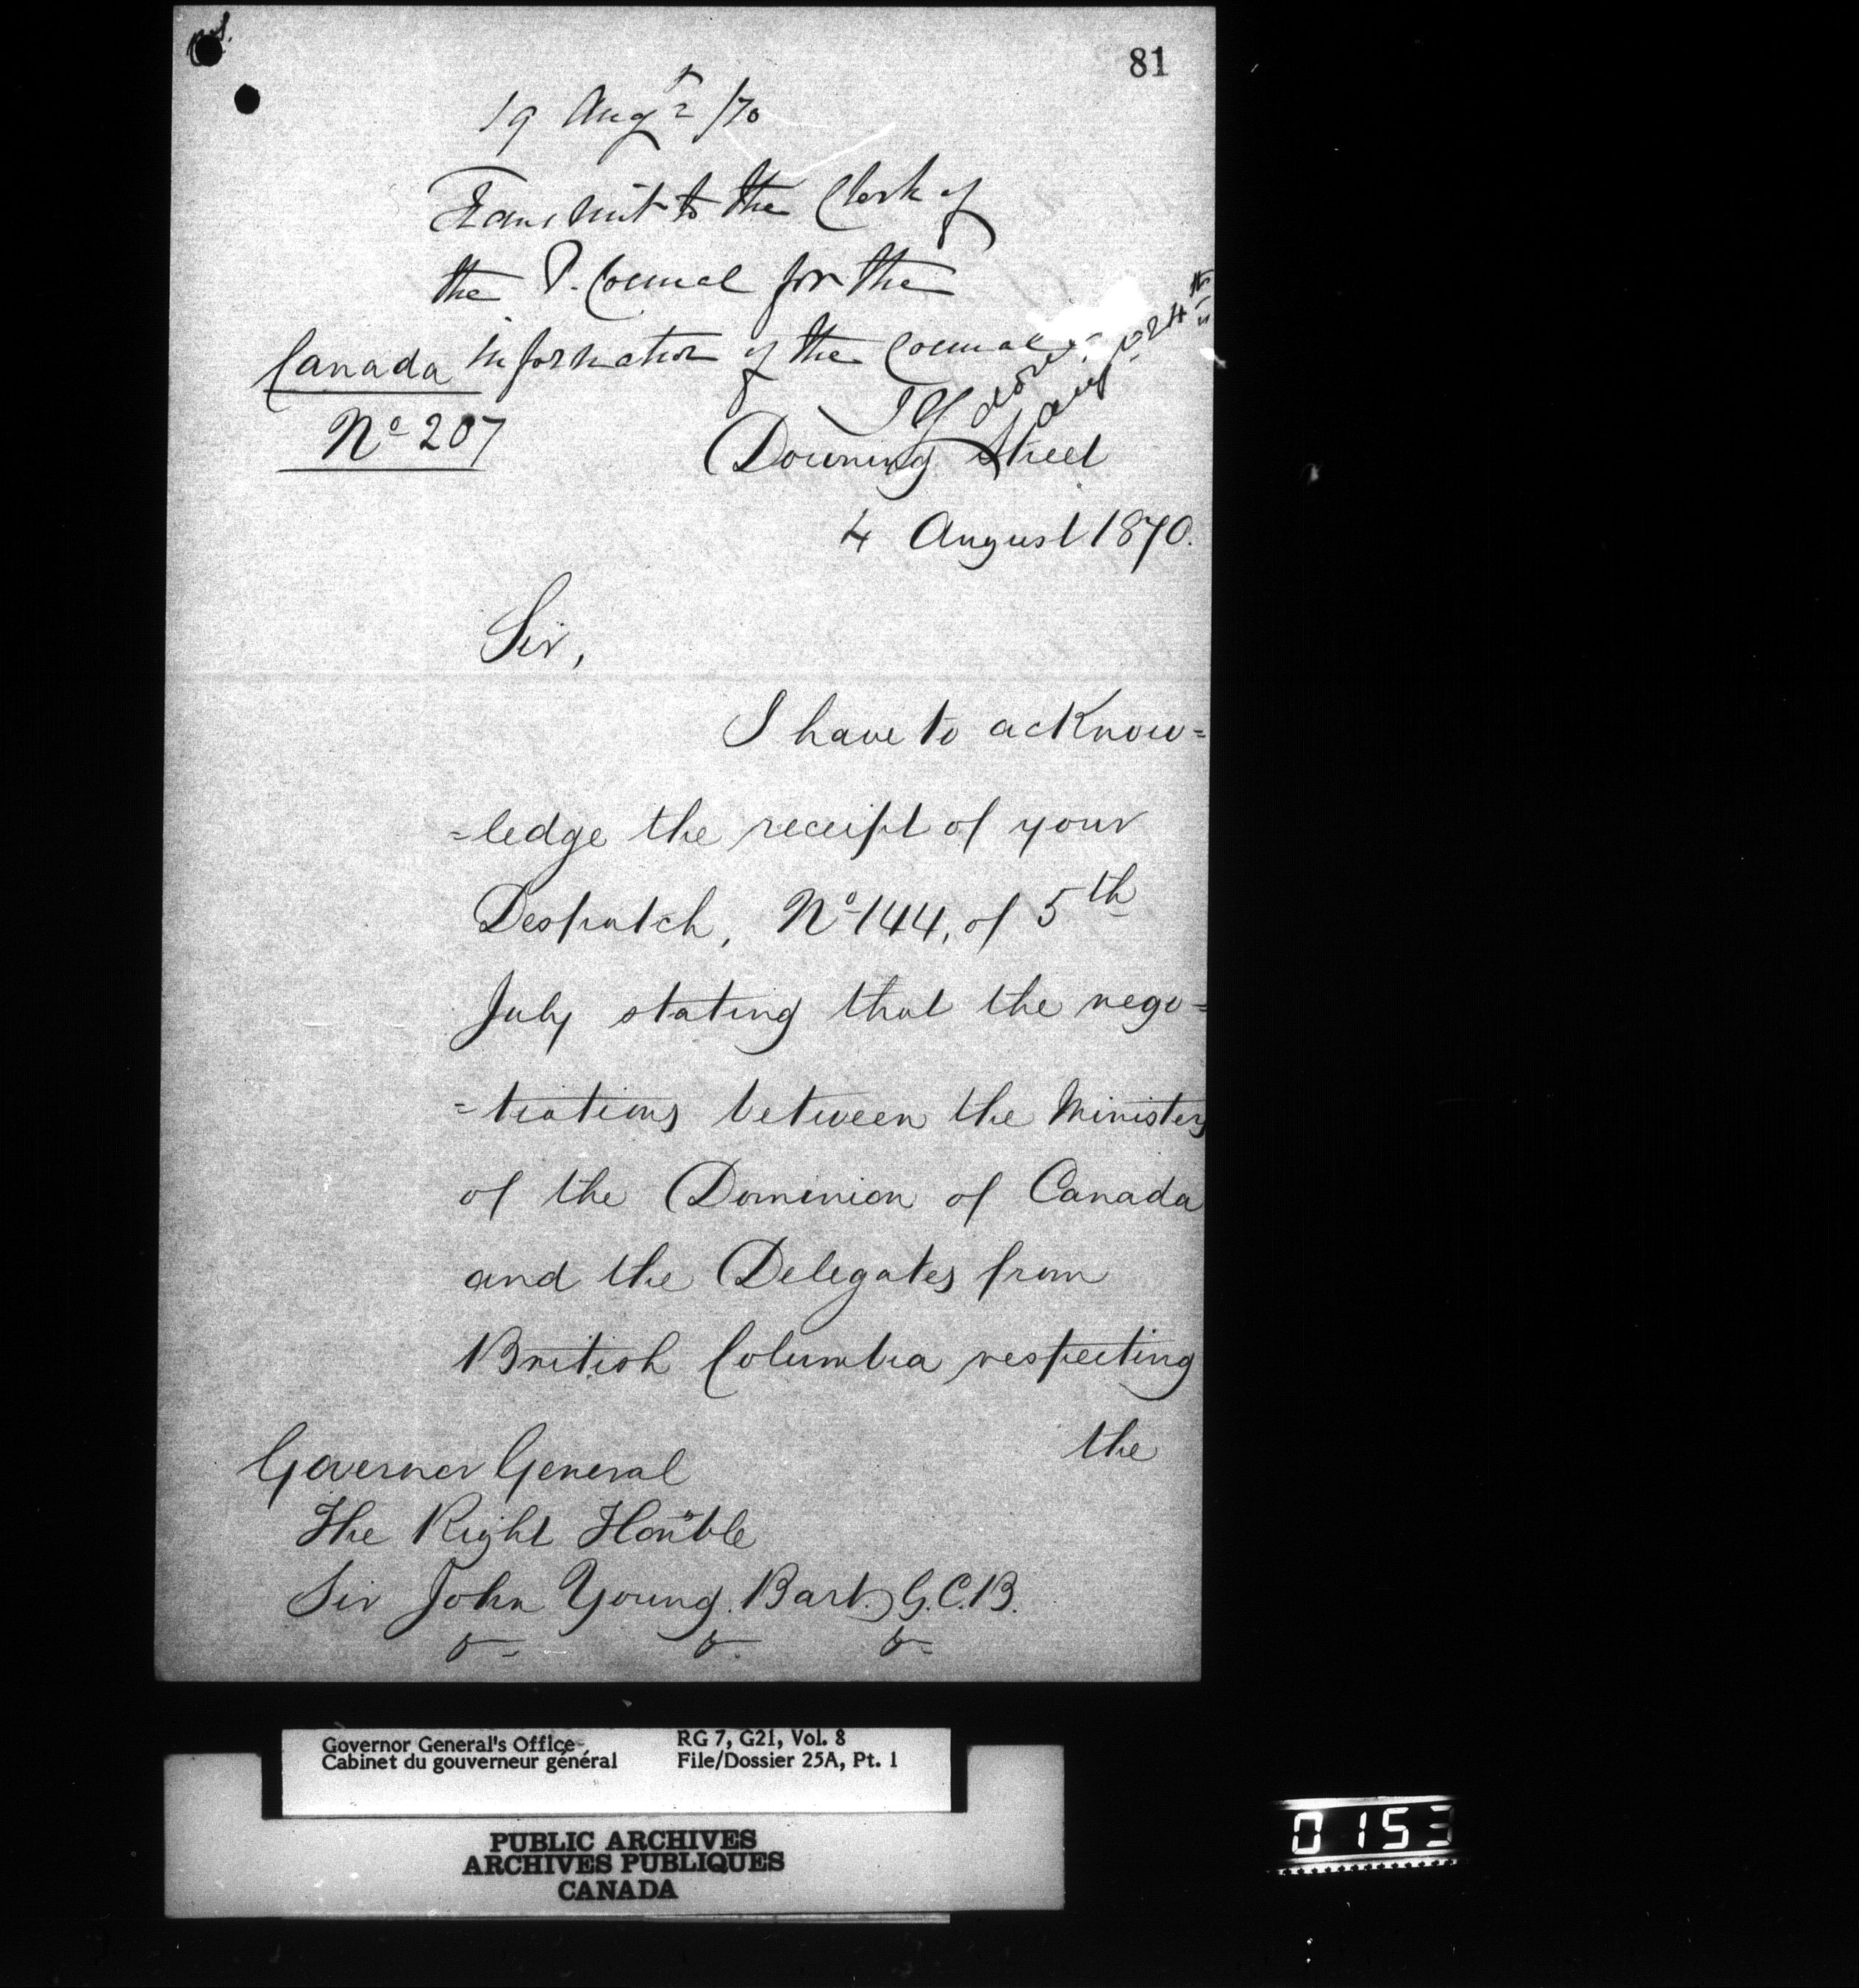 81
19 Augt /70
Transmit to the Clerk of
the P. Council for the
information of the Council
JY
done
Aug 24th
Canada
No 207
Downing Street
4 August 1870.
Sir,
I have to acknow=
=ledge the receipt of your
Despatch, No 144, of 5th
July stating that the nego=
=tiations between the Ministers
of the Dominion of Canada
and the Delegates from
British Columbia respecting
the
Governor General
The Right Honble
Sir John Young. Bart. G.C.B.
Governor General's Office
Cabinet du gouverneur général
RG 7, G21, Vol. 8
File/Dossier 25A, Pt. 1
PUBLIC ARCHIVES
ARCHIVES PUBLIQUES
CANADA
0153